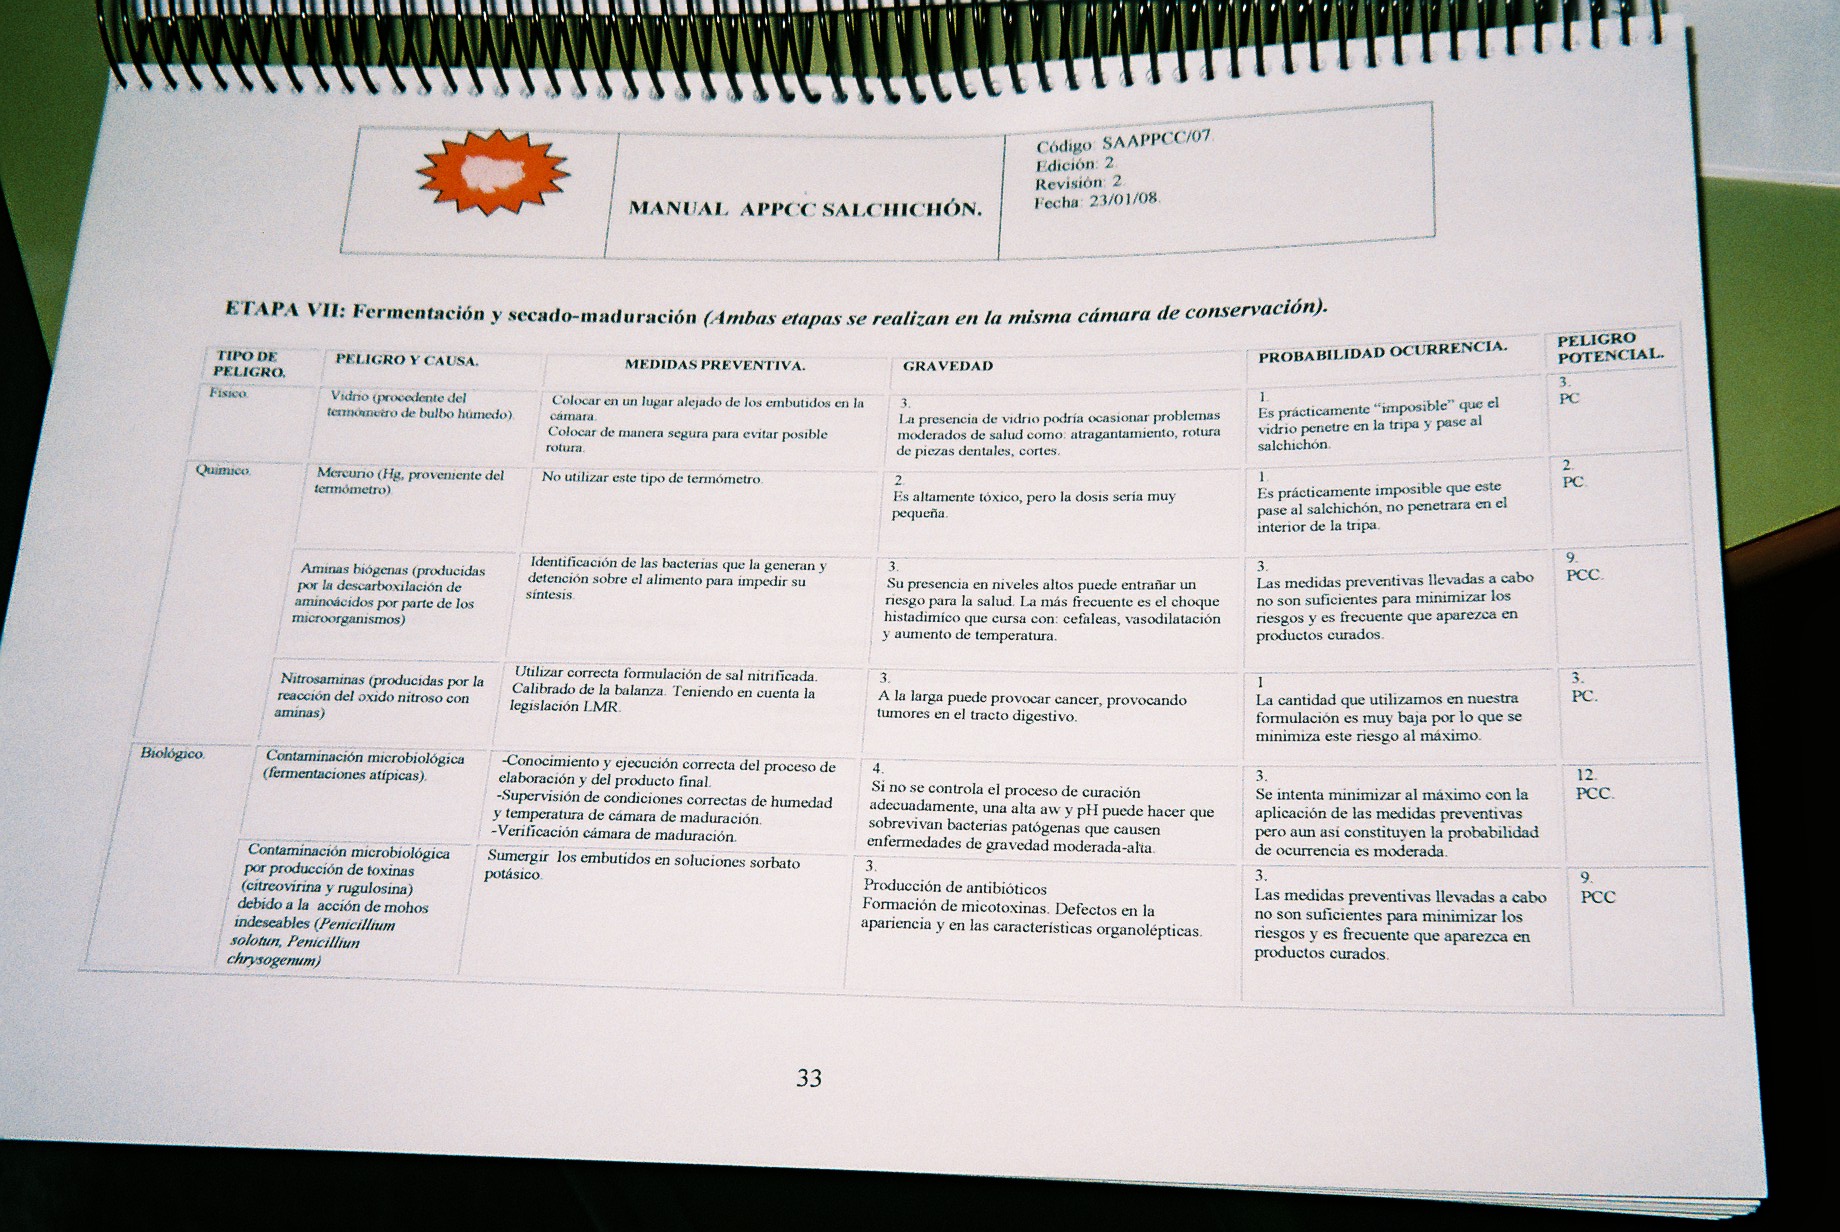 MANUAL APPCC SALCHICHÓN.
Código: SAAPPCC/07.
Edición: 2.
Revisión: 2.
Fecha: 23/01/08.
ETAPA VII: Fermentación y secado-maduración (Ambas etapas se realizan en la misma cámara de conservación).
TIPO DE
PELIGRO.
PELIGRO Y CAUSA.
MEDIDAS PREVENTIVA.
GRAVEDAD
PROBABILIDAD OCURRENCIA.
PELIGRO
POTENCIAL.
Físico.
Vidrio (procedente del
termómetro de bulbo húmedo).
Colocar en un lugar alejado de los embutidos en la
cámara.
Colocar de manera segura para evitar posible
rotura.
3.
La presencia de vidrio podría ocasionar problemas
moderados de salud como: atragantamiento, rotura
de piezas dentales, cortes.
1.
Es prácticamente “imposible” que el
vidrio penetre en la tripa y pase al
salchichón.
3.
PC
Químico.
Mercurio (Hg, proveniente del
termómetro).
No utilizar este tipo de termómetro.
2.
Es altamente tóxico, pero la dosis sería muy
pequeña.
1.
Es prácticamente imposible que este
pase al salchichón, no penetrara en el
interior de la tripa.
2.
PC.
Aminas biógenas (producidas
por la descarboxilación de
aminoácidos por parte de los
microorganismos)
Identificación de las bacterias que la generan y
detención sobre el alimento para impedir su
síntesis.
3.
Su presencia en niveles altos puede entrañar un
riesgo para la salud. La más frecuente es el choque
histadimíco que cursa con: cefaleas, vasodilatación
y aumento de temperatura.
3.
Las medidas preventivas llevadas a cabo
no son suficientes para minimizar los
riesgos y es frecuente que aparezca en
productos curados.
9.
PCC.
Nitrosaminas (producidas por la
reacción del oxido nitroso con
aminas)
Utilizar correcta formulación de sal nitrificada.
Calibrado de la balanza. Teniendo en cuenta la
legislación LMR.
3.
A la larga puede provocar cancer, provocando
tumores en el tracto digestivo.
1
La cantidad que utilizamos en nuestra
formulación es muy baja por lo que se
minimiza este riesgo al máximo.
3.
PC.
Biológico.
Contaminación microbiológica
(fermentaciones atípicas).
-Conocimiento y ejecución correcta del proceso de
elaboración y del producto final.
-Supervisión de condiciones correctas de humedad
y temperatura de cámara de maduración.
-Verificación cámara de maduración.
4.
Si no se controla el proceso de curación
adecuadamente, una alta aw y pH puede hacer que
sobrevivan bacterias patógenas que causen
enfermedades de gravedad moderada-alta.
3.
Se intenta minimizar al máximo con la
aplicación de las medidas preventivas
pero aun así constituyen la probabilidad
de ocurrencia es moderada.
12.
PCC.
Contaminación microbiológica
por producción de toxinas
(citreovirina y rugulosina)
debido a la acción de mohos
indeseables (Penicillium
solotun, Penicilliun
chrysogenum)
Sumergir los embutidos en soluciones sorbato
potásico.
3.
Producción de antibióticos
Formación de micotoxinas. Defectos en la
apariencia y en las características organolépticas.
3.
Las medidas preventivas llevadas a cabo
no son suficientes para minimizar los
riesgos y es frecuente que aparezca en
productos curados.
9.
PCC
33